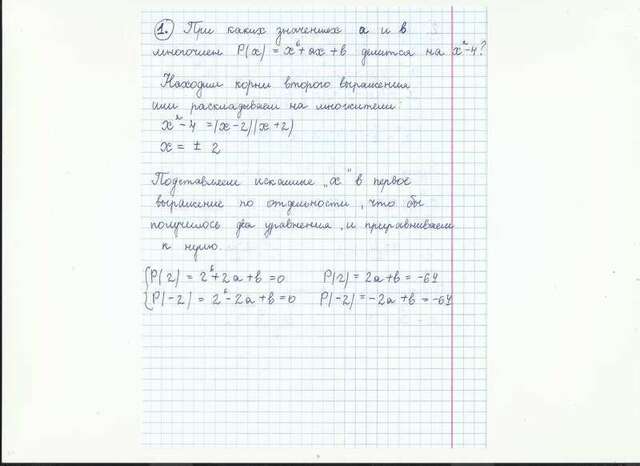 1. При каких значениях a и b
многочлен P(x) = x⁶+ax+b делится на x²-4?
Находим корни второго выражения
или раскладываем на множители:
x²-4 =(x-2)(x+2)
x = ± 2
Подставляем искомые „x" в первое
выражение по отдельности, что бы
получилось два уравнения, и приравниваем
к нулю.
{P(2) = 2⁶+2a+b=0 P(2) = 2a+b = -64
{P(-2) = 2⁶-2a+b=0 P(-2) = -2a+b = -64